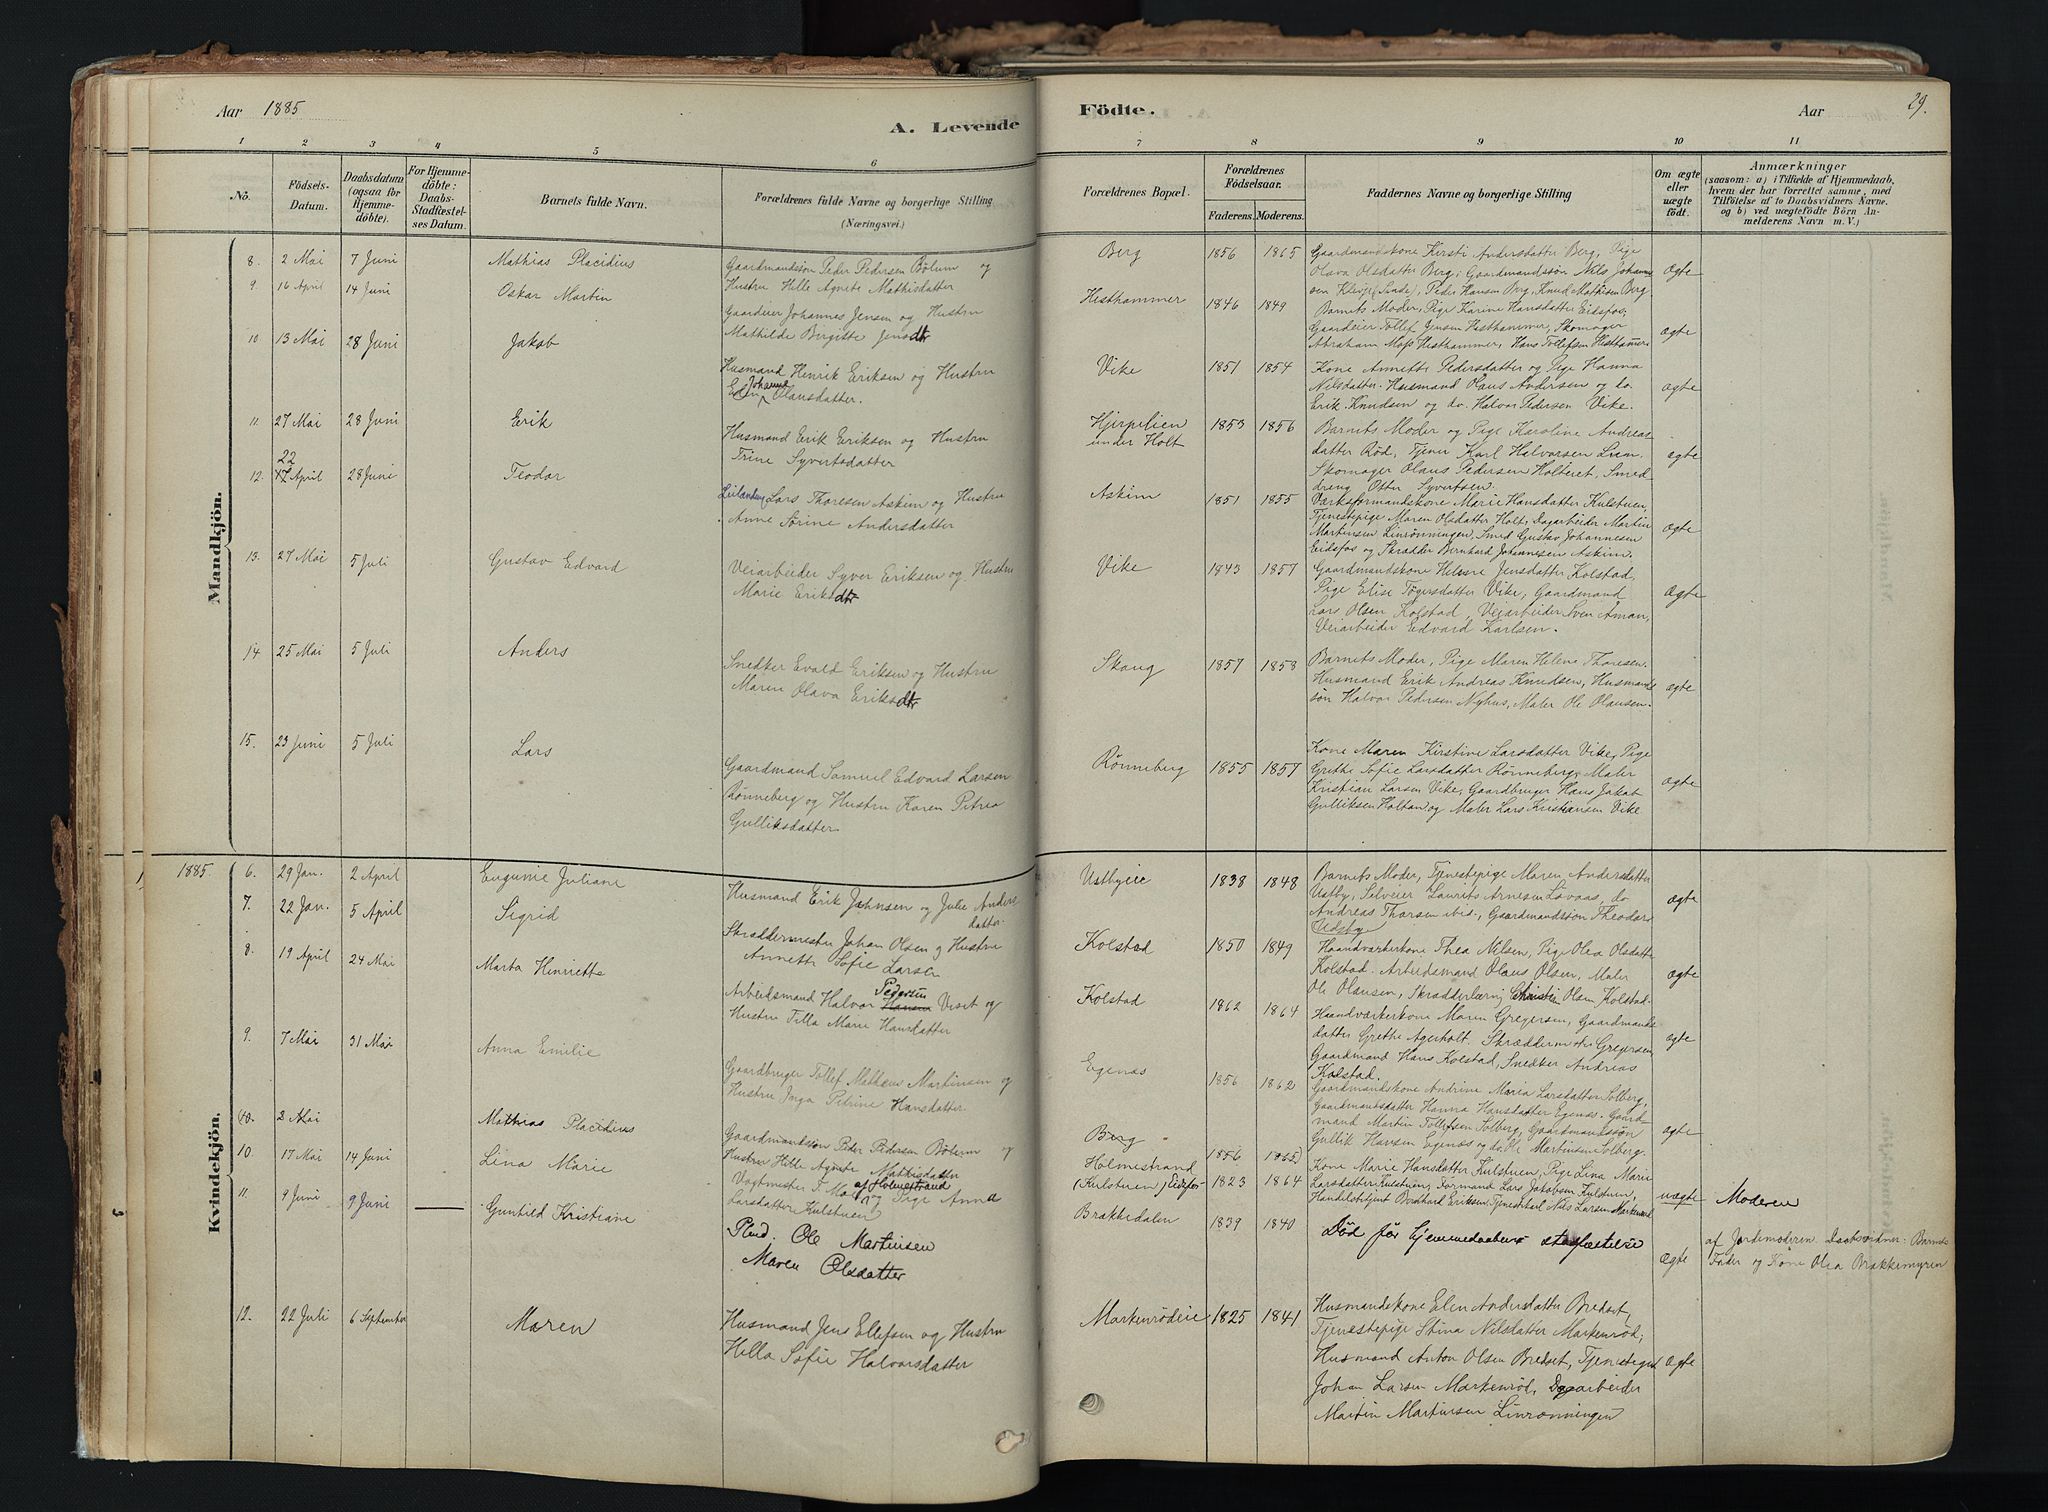 Aar 1885
A. Levende
1 2 3 4 5 6
No.
Födsels-
Datum.
Daabsdatum
(ogsaa for
Hjemme-
döbte).
For Hjemme-
döbte:
Daabs-
Stadfæstel-
ses Datum.
Barnets fulde Navn.
Forældrenes fulde Navne og borgerlige Stilling
(Næringsvei.)
Mandkjön.
8. 2 Mai 7 Juni Mathias Placidius
Gaardmandssøn Peder Pedersen Bölum og
Hustru Helle Agnete Mathisdatter
9. 16 April 14 Juni Oskar Martin
Gaardeier Johannes Jensen og Hustru
Mathilde Birgitte Jensdtr
10 13 Mai 28 Juni Jakob
Husmand Henrik Eriksen og Hustru
Johanne
Olausdatter.
11. 27 Mai 28 Juni Erik
Husmand Erik Eriksen og Hustru
Trine Syvertsdatter
22
12. April 28 Juni Teodor
Leilænding Lars Thoresen Askim og Hustru
Anne Sørine Andersdatter
13. 27 Mai 5 Juli Gustav Edvard
Veiarbeider Syver Eriksen og Hustru
Marie Eriksdtr
14 25 Mai 5 Juli Anders
Snedker Evald Eriksen og Hustru
Maren Olava Eriksdtr
15. 23 Juni 5 Juli Lars
Gaardmand Samuel Edvard Larsen
Rønneberg og Hustru Karen Petrea
Gulliksdatter
1885.
Kvindekjön.
6. 29 Jan. 2 April Eugenie Juliane
Husmand Erik Johnsen og Julie Anders-
datter
7. 22 Jan. 5 April Sigrid
Skræddermester Johan Olsen og Hustru
Annette Sofie Larsen
8. 19 April 24 Mai Marta Henriette
Pedersen
Arbeidsmand Halvor Hansen Viset og
Hustru Tilla Marie Hansdatter
9. 7 Mai 31 Mai Anna Emilie
Gaardbruger Tollef Matheus Martinsen og
Hustru Inga Petrine Hansdatter
10. 2 Mai Mathias Placidius
Gaardmandssøn Peder Pedersen Bölum og
Hustru Helle Agnete Mathisdatter
10. 17 Mai 14 Juni Lina Marie
af Holmestrand
Vagtmester og Pige Anna
Larsdatter Kulstuen
11. 9 Juni 9 Juni — Gunhild Kristiane
Ole Martinsen
Maren Olsdatter
12. 22 Juli 6 September Maren
Husmand Jens Ellefsen og Hustru
Hella Sofie Halvorsdatter
Födte.
Aar
29.
7 8 9 10 11
Forældrenes Bopæl.
Forældrenes
Födselsaar.
Faderens. Moderens.
Faddernes Navne og borgerlige Stilling
Om ægte
eller
uægte
födt.
Anmærkninger
(saasom: a) i Tilfælde af Hjemmedaab,
hvem der har forrettet samme, med
Tilföielse af to Daabsvidners Navne.
og b) ved uægtefödte Börn An-
melderens Navn m. V.)
Berg 1856 1865
Gaardmandskone Kirsti Andersdatter Berg, Pige
Olava Olsdatter Berg, Gaardmandssøn Nils Johannes-
sen Klevje (Sande), Peder Hansen Berg, Knud Mathisen Berg
ægte
Hesthammer 1846 1849
Barnets Moder, Pige Karine Hansdatter Eidsfos,
Gaardeier Tollef Jensen Hesthammer, Skomager
Abraham Moss Hesthammer, Hans Tollefsen Hesthammer
ægte
Vike 1851 1854
Kone Annette Pedersdatter og Pige Hanna
Nilsdatter. Husmand Olaus Andersen og do.
Erik Knudsen og do. Halvor Pedersen Vike.
ægte
Hjerpelien
under Holt
1853 1856
Barnets Moder og Pige Karoline Andreas-
datter Röd, Tjener Karl Halvorsen Lium.
Skomager Olaus Pedersen Holteret, Smed-
dreng Otter Syvertsen.
ægte
Askim 1851 1855
Værksformandskone Marie Hansdatter Kulstuen,
Tjenestepige Maren Olsdatter Holt, Dagarbeider Martin
Martinsen Linrønningen, Smed Gustav Johannesen
Eidsfos og Skrædder Bernhard Johannesen Askim.
ægte
Vike 1843 1857
Gaardmandskone Helene Jensdatter Kolstad,
Pige Elise Tøgersdatter Vike, Gaardmand
Lars Olsen Kolstad, Veiarbeider Sven Åman,
Veiarbeider Edvard Karlsen.
ægte
Skaug 1857 1858
Barnets Moder, Pige Maren Helene Thoresen.
Husmand Erik Andreas Knudsen, Husmands-
søn Halvor Pedersen Nyhus, Maler Ole Olausen.
ægte
Rönneberg 1855 1857
Kone Maren Kirstine Larsdatter Vike, Pige
Grethe Sofie Larsdatter Rønneberg, Maler
Kristian Larsen Vike, Gaardbruger Hans Jakob
Gulliksen Holtan og Maler Lars Kristiansen Vike
ægte
Ustbyeie 1838 1848
Barnets Moder, Tjenestepige Maren Andersdatter
Ustby, Selveier Laurits Arnesen Løvaas, do
Andreas Thorsen ibid., Gaardmandssøn Theodor
Udsby
ægte
Kolstad 1850 1849
Haandværkerkone Thea Nilsen, Pige Olea Olsdatter
Kolstad. Arbeidsmand Olaus Olsen, Maler
Ole Olausen, Skrædderlærling Christian Olsen Kolstad.
ægte
Kolstad 1862 1864
Haandværkerkone Maren Gregersen, Gaardmands-
datter Grethe Agerholt. Skræddermester Gregersen,
Gaardmand Hans Kolstad, Snedker Andreas
Kolstad.
ægte
Egenæs 1856 1862
Gaardmandskone Andrine Maria Larsdatter Solberg,
Gaardmandsdatter Hanna Hansdatter Egenæs. Gaard-
mand Martin Tollefsen Solberg, Gaardmandssøn
Gullik Hansen Egenæs og do. Ole Martinsen Solberg.
ægte
Berg 1856 1865
Holmestrand
(Kulstuen) Eidsfos
1823 1864
Kone Marie Hansdatter Kulstuen, Pige Lina Marie
Larsdatter Kulstuen, Formand Lars Jakobsen Kulstuen,
Handelsbetjent Bernhard Eriksen, Tjenestekarl Nils Larsen Markerød
uægte Moderen
Brakkedalen 1839 1840
Död før hjemmedaabens stadfæstelse
ægte
af Jordemoderen. Daabsvidner: Barnets
Fader og Kone Olea Brakkemyren
Markenrödeie 1825 1841
Husmandskone Elen Andersdatter Bredset,
Tjenestepige Stina Nilsdatter Markenröd,
Husmand Anton Olsen Bredset, Tjenestegut
Johan Larsen Markenröd, Dagarbeider
Martin Martinsen Linrønningen
ægte